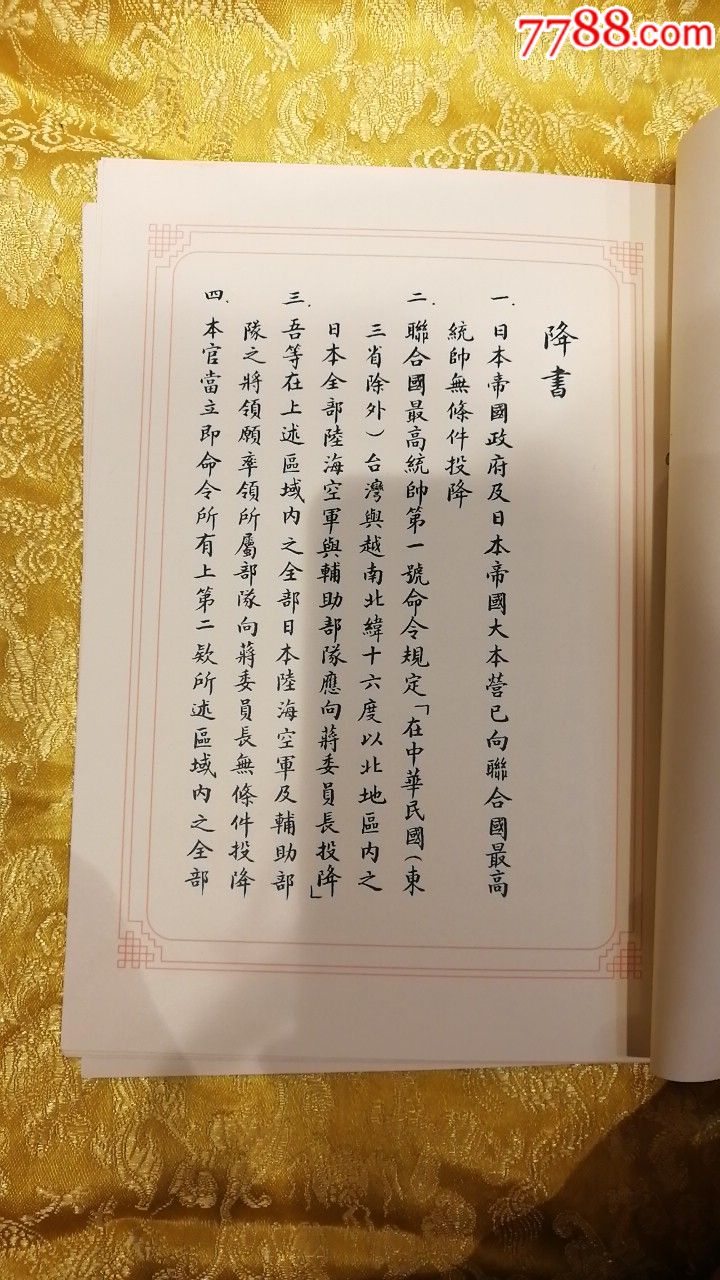 7788.com
降書
一.日本帝國政府及日本帝國大本營已向聯合國最高
統帥無條件投降
二.聯合國最高統帥第一號命令規定「在中華民國(東
三省除外)台灣與越南北緯十六度以北地區內之
日本全部陸海空軍與輔助部隊應向蔣委員長投降」
三.吾等在上述區域內之全部日本陸海空軍及輔助部
隊之將領願率領所屬部隊向蔣委員長無條件投降
四.本官當立即命令所有上第二欵所述區域內之全部